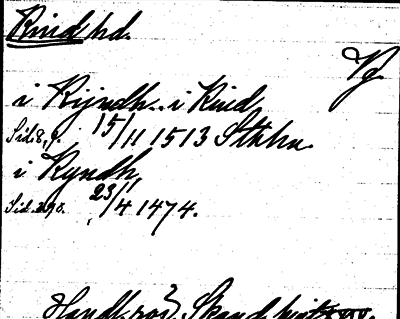 Kindhd.
Vg
i Kijndh.. i Kind
Sid. 8, 9. 15/11 1513 Sthlm.
i Kyndh,
Sid. 298. 23/4 1474.
Handl. rör. Skand. hist.